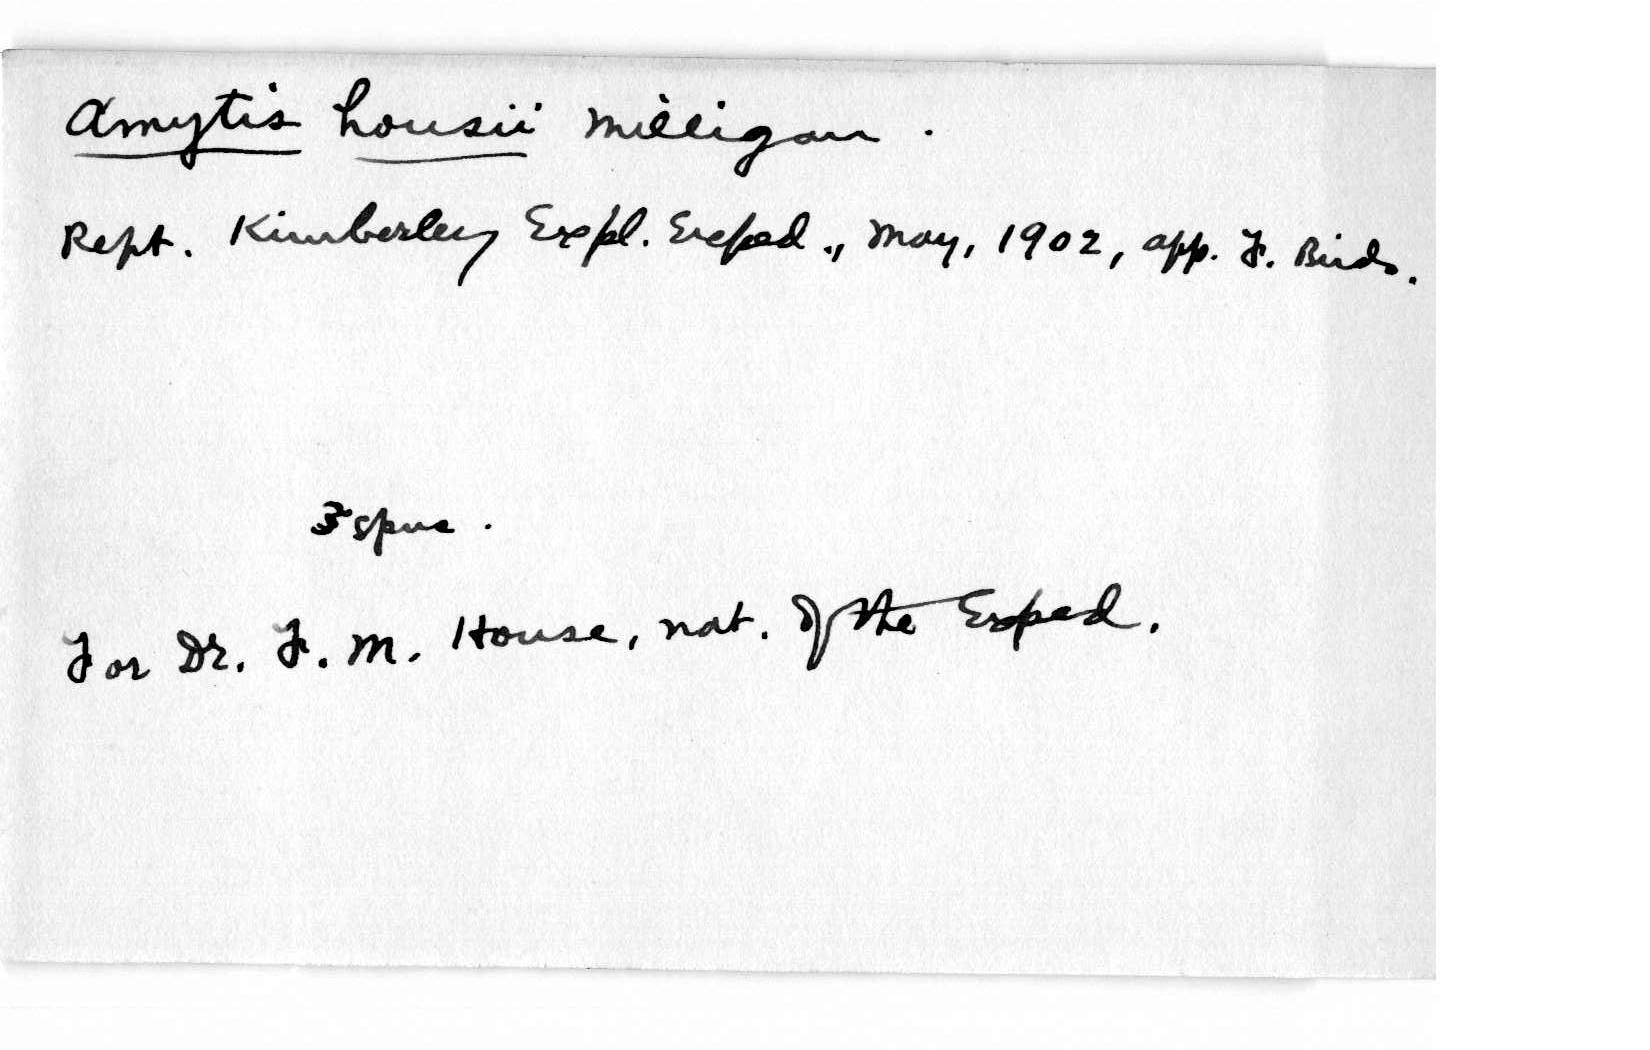 Amytis housii Milligan.
Rept. Kimberley Expl. Exped., May, 1902, app. F. Birds.
3 spms.
For Dr. F. M. House, nat. of the Exped.